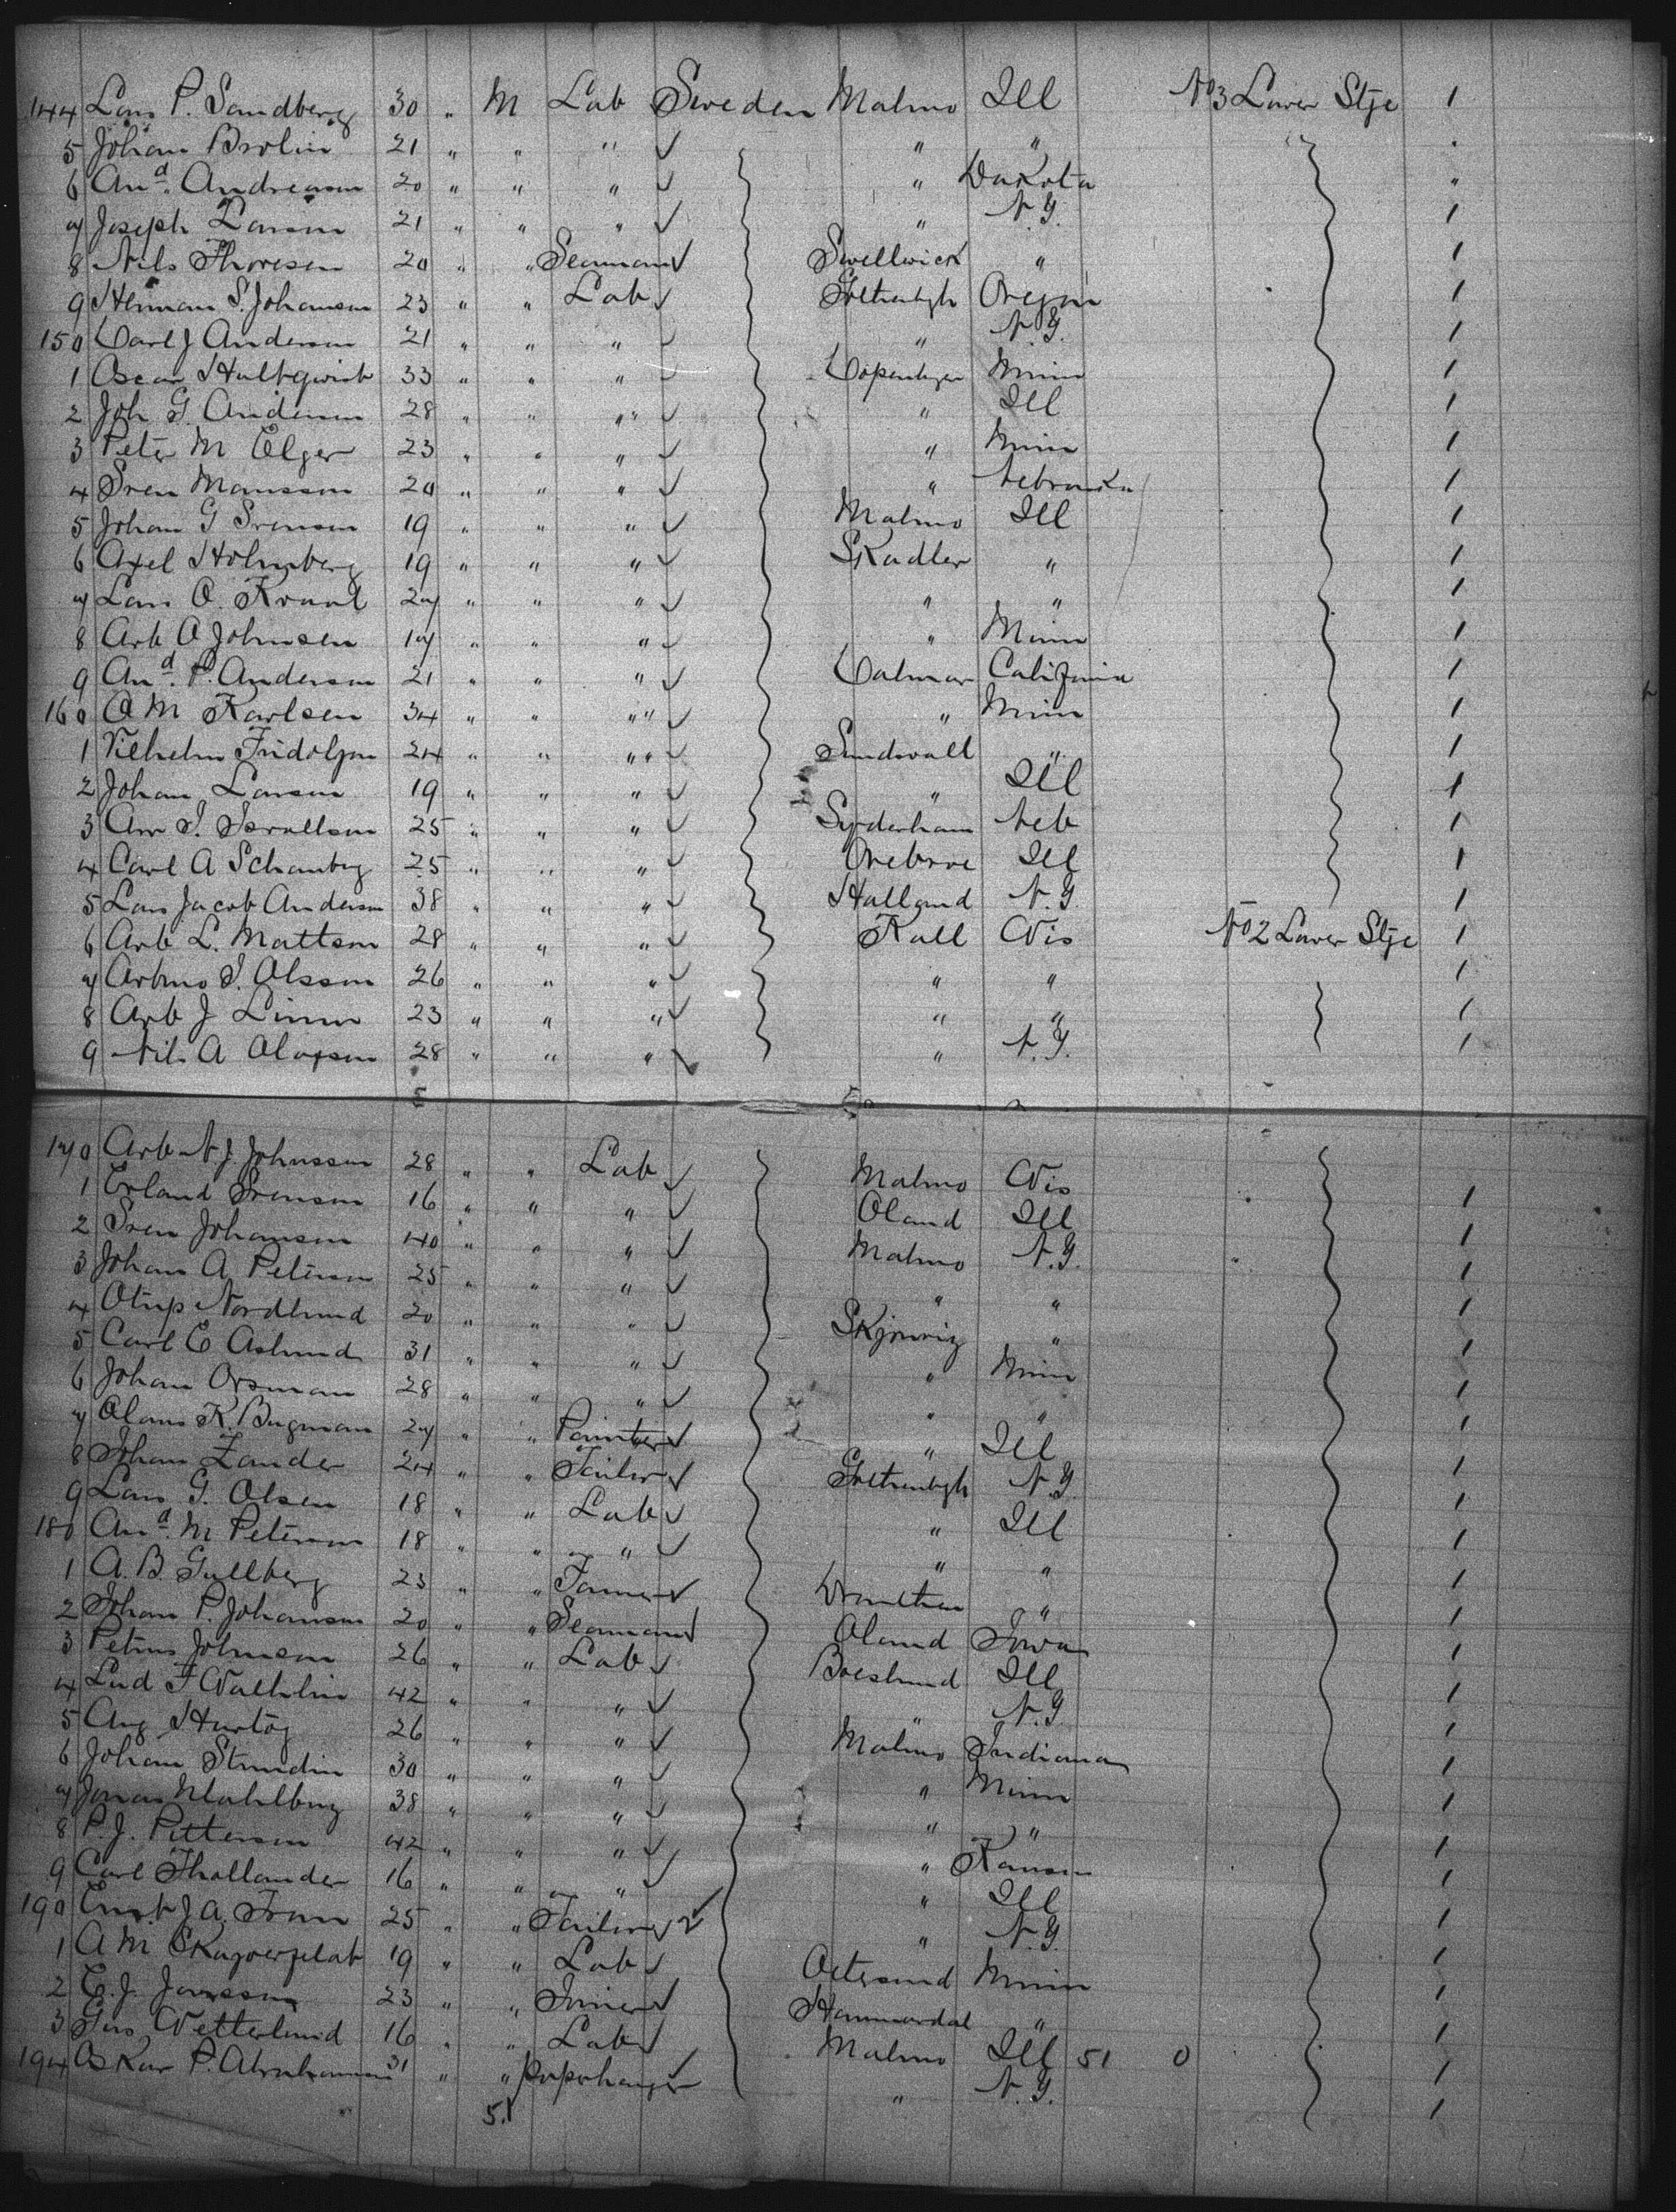 144 Lars P. Sandberg 30 " M Lab Sweden Malmo Ill No3 Lower Stge 1
5 Johan Brolin 21 " " " " "
6 And. Andreason 20 " " " " Dakota "
7 Joseph Larson 21 " " " " N.Y. 1
8 Nils Thoresen 20 " " Seaman Swellwick " 1
9 Herman S. Johanson 23 " " Lab Gothenbgh Oregon 1
150 Carl J Anderson 21 " " " " N.Y. 1
1 Oscar Hultqwist 33 " " " Copenhgen Minn 1
2 Joh G. Anderson 28 " " " " Ill 1
3 Peter M Elger 23 " " " " Minn 1
4 Sven Mansson 20 " " " " Nebraska 1
5 Johan G Svenson 19 " " " Malmo Ill 1
6 Axel Holmberg 19 " " " Skadler " 1
7 Lars O. 27 " " " " " 1
8 Arb A Johnsen 17 " " " " Minn 1
9 And. P. Anderson 21 " " " Calmar California 1
160 A M Karlsen 34 " " " " Minn 1
1 Vilhelm Fridolfson 24 " " " Sundsvall " 1
2 Johan Larson 19 " " " " Ill 1
3 J. 25 " " " Syderham Neb 1
4 Carl A Schanberg 25 " " " Orebroe Ill 1
5 Lars Jacob Anderson 38 " " " Halland N.Y. 1
6 Arb L. Mattson 28 " " " Kall Wis No2 Lower Stge 1
7 Olsson 26 " " " " " 1
8 Arb J 23 " " " " " 1
9 Nils A Olofson 28 " " " " N.Y. 1
170 Arb N. J. Johnsson 28 " " Lab Malmo Wis
1 Erland Svenson 16 " " " Oland Ill 1
2 Sven Johanson 40 " " " Malmo N.Y. 1
3 Johan A. Peterson 25 " " " " " 1
4 Nordlund 20 " " " Skjonvig " 1
5 Carl E Aslund 31 " " " " Minn 1
6 Johan Orsman 28 " " " " " 1
7 K. 27 " " Painter " Ill 1
8 Johan Zander 24 " " Tailor Gothenbgh N.Y. 1
9 Lars G. Olsen 18 " " Lab " Ill 1
180 And. M Peterson 18 " " " " " 1
1 A. B. Gullberg 23 " " Farmer " 1
2 Johan P. Johanson 20 " " Seaman Oland Iowa 1
3 Petrus Johnson 26 " " Lab Boeslund Ill 1
4 Lud F Wallelin 42 " " " " N.Y. 1
5 Aug Hartog 26 " " " Malmo Indiana 1
6 Johan Strundin 30 " " " " Minn 1
7 Jonas Mahlberg 38 " " " " " 1
8 P. J. Petterson 42 " " " " Kansas 1
9 Carl Thollander 16 " " " " Ill 1
190 Ernst J A. 25 " " Tailor " N.Y. 1
1 A M 19 " " Lab Ostersund Minn 1
2 C. J. Jonsson 23 " " Joiner Hammardal " 1
3 Gus Wetterlund 16 " " Lab Malmo Ill 51 0 1
194 Oskar P. Abrahamson 31 " " paperhanger " N.Y. 1
51